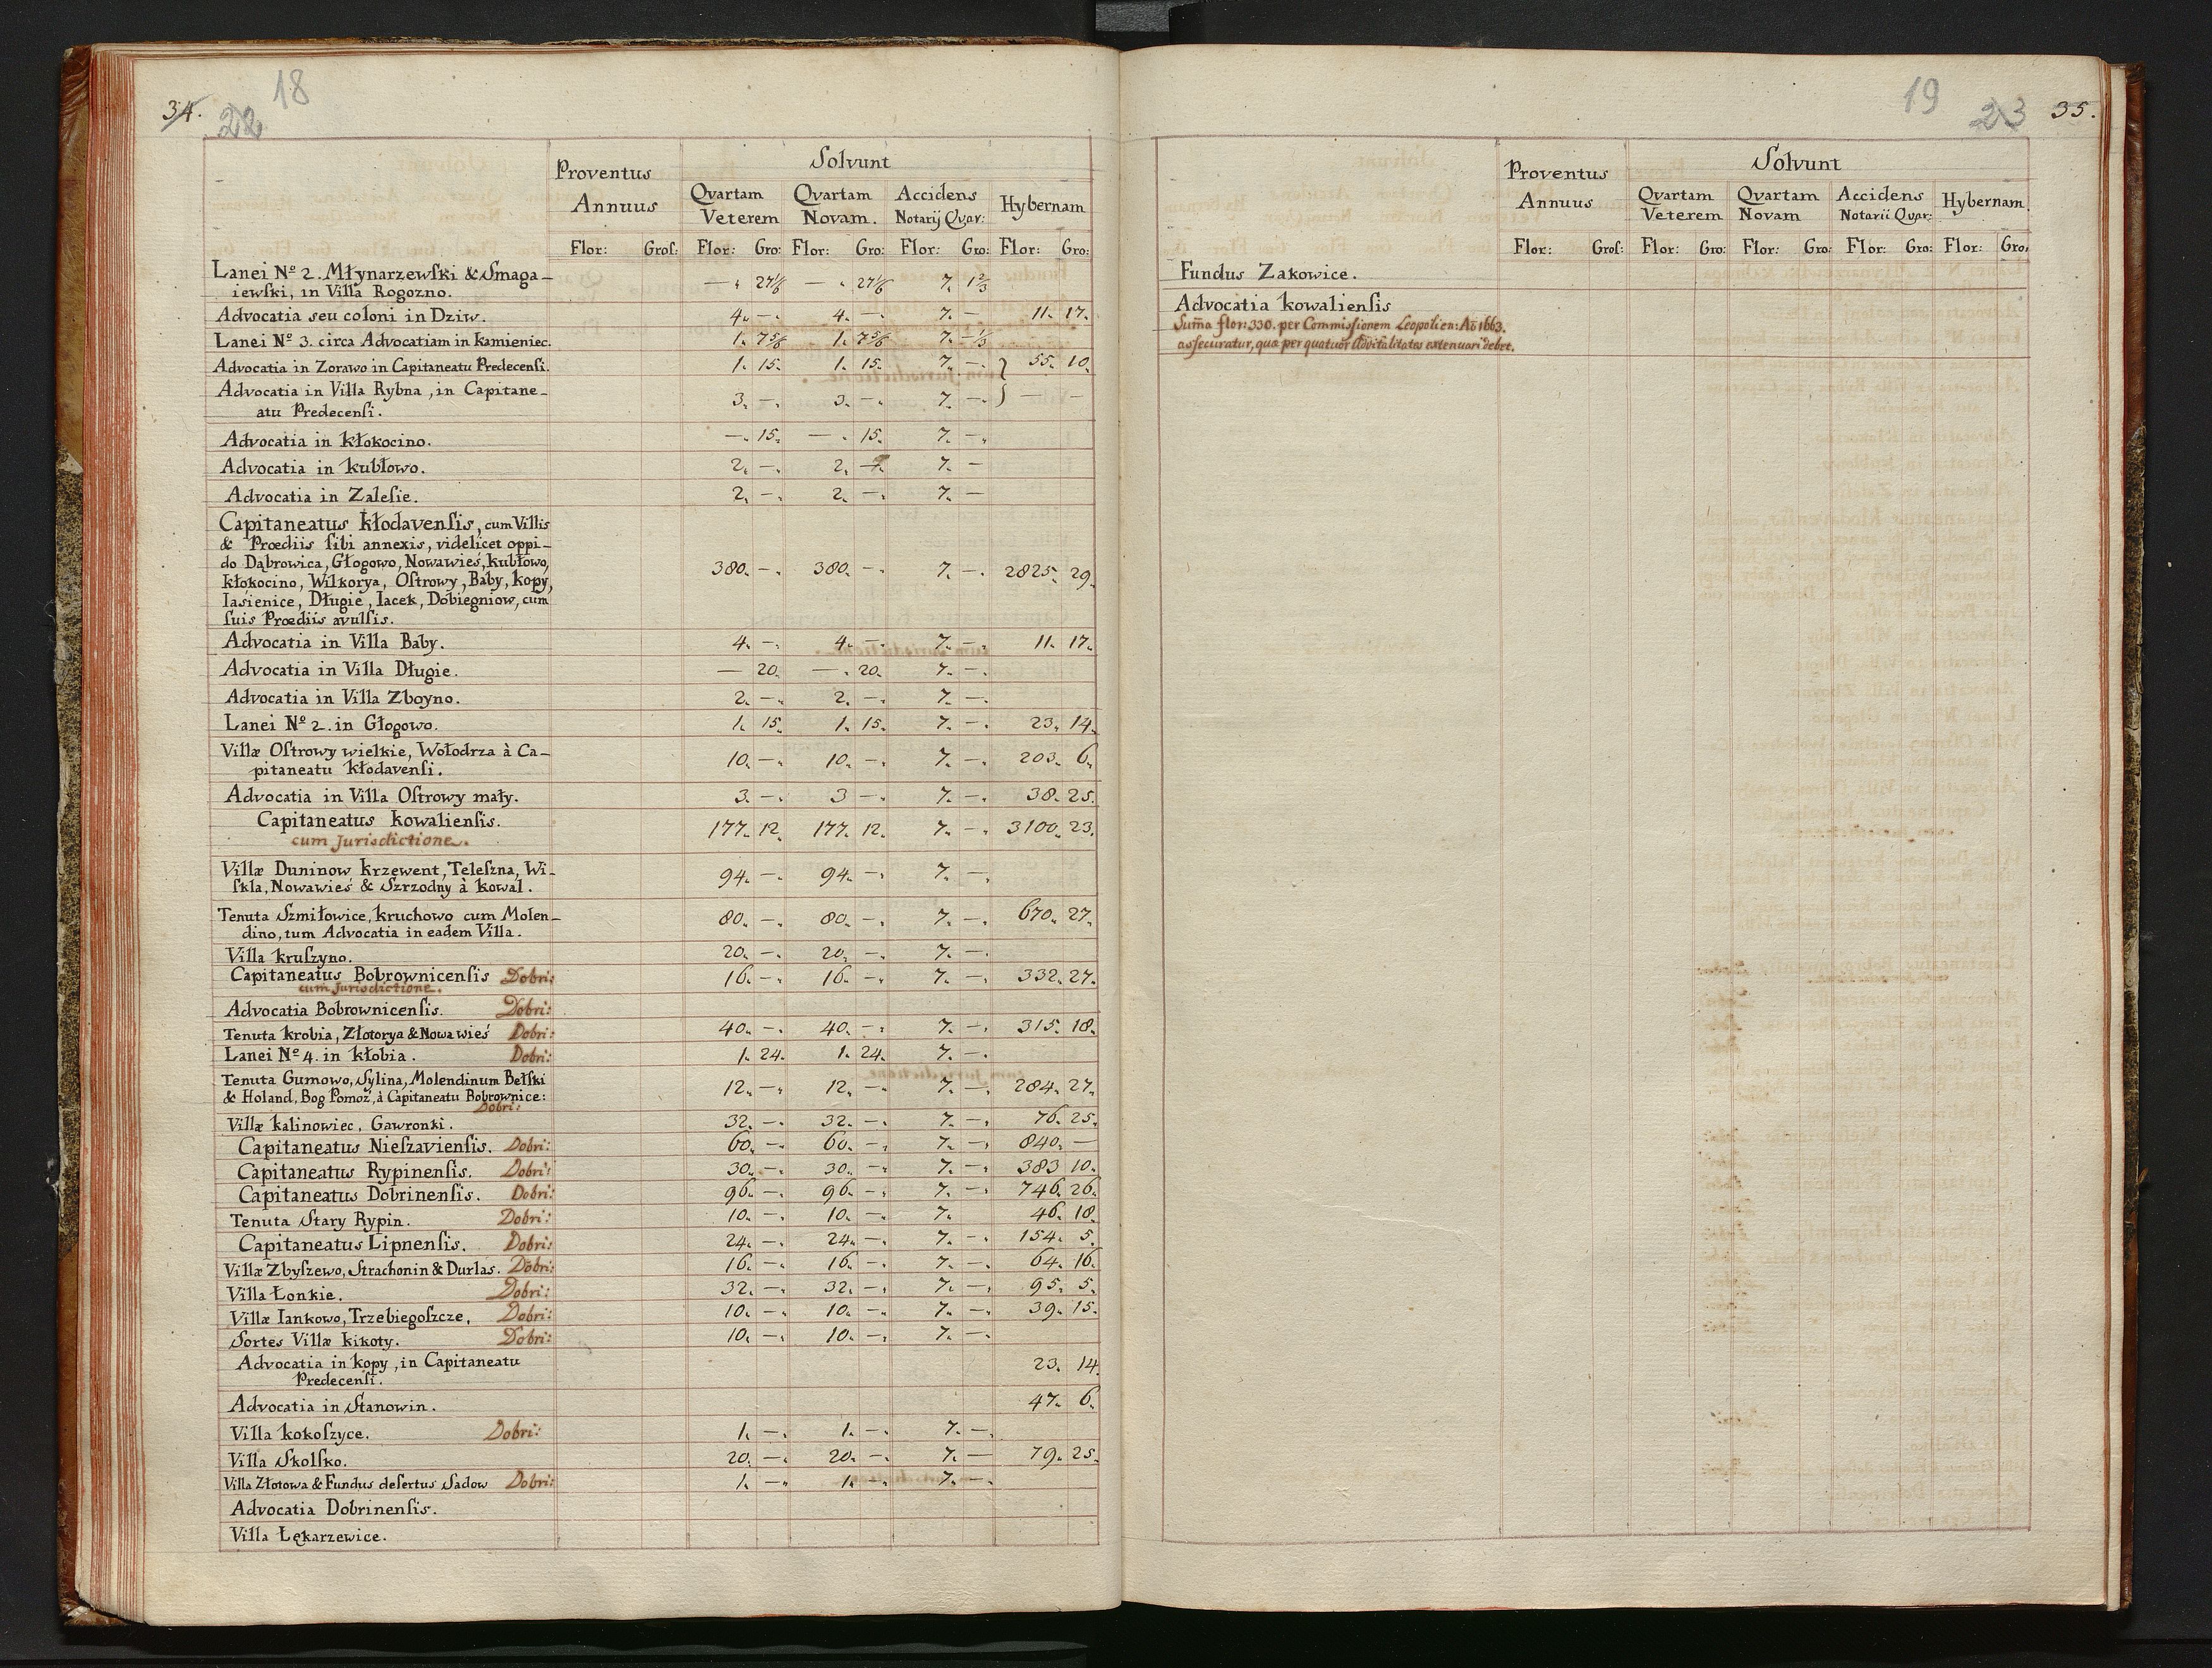 34. 22 18
Proventus Annuus Solvunt
Qvartam Veterem Qvartam Novam. Accidens Notarij Qvar: Hybernam
Flor: Groſ: Flor: Gro: Flor: Gro: Flor: Gro: Flor: Gro:
Lanei Nº 2. Młynarzewſki & Smaga-
iewſki, in Villa Rogozno. — 27⅙ — 27⅙ 7. 1⅔
Advocatia seu coloni in Dziw. 4. — 4. — 7. — 11. 17.
Lanei Nº 3. circa Advocatiam in kamieniec. 1. 7⅚ 1. 7⅚ 7. —⅓
Advocatia in Zorawo in Capitaneatu Predecenſi. 1. 15. 1. 15. 7. — } 55. 10.
Advocatia in Villa Rybna, in Capitane-
atu Predecenſi. 3. — 3. — 7. — } — —
Advocatia in kłokocino. — 15. — 15. 7. —
Advocatia in kubłowo. 2. — 2. — 7. —
Advocatia in Zaleſie. 2. — 2. — 7. —
Capitaneatus kłodavenſis, cum Villis
& Prœdiis ſibi annexis, videlicet oppi-
do Dąbrowica, Głogowo, Nowawieś, kubłowo,
kłokocino, Wilkorya, Oſtrowy, Baby, kopy, 380. — 380. — 7. — 2825. 29.
Iasienice, Długie, Iacek, Dobiegniow, cum
ſuis Prœdiis avulſis.
Advocatia in Villa Baby. 4. — 4. — 7. — 11. 17.
Advocatia in Villa Długie. — 20. — 20. 7. —
Advocatia in Villa Zboyno. 2. — 2. — 7. —
Lanei Nº 2. in Głogowo. 1. 15. 1. 15. 7. — 23. 14.
Villæ Oſtrowy wielkie, Wołodrza à Ca-
pitaneatu kłodavenſi. 10. — 10. — 7. — 203. 6.
Advocatia in Villa Oſtrowy mały. 3. — 3 — 7. — 38. 25.
Capitaneatus kowalienſis. 177. 12. 177. 12. 7. — 3100. 23.
cum Jurisdictione.
Villæ Duninow krzewent, Teleſzna, Wi-
ſkla, Nowawieś & Szrzodny à kowal. 94. — 94. — 7. —
Tenuta Szmiłowice, kruchowo cum Molen-
dino, tum Advocatia in eadem Villa. 80. — 80. — 7. — 670. 27.
Villa kruſzyno. 20. — 20. — 7. —
Capitaneatus Bobrownicenſis Dobri: 16. — 16. — 7. — 332. 27.
cum Jurisdictione.
Advocatia Bobrownicenſis. Dobri:
Tenuta krobia, Złotorya & Nowawieś Dobri: 40. — 40. — 7. — 315. 18.
Lanei Nº 4. in kłobia. Dobri: 1. 24. 1. 24. 7. —
Tenuta Gumowo, Sylina, Molendinum Bełſki
& Holand, Bog Pomoż, à Capitaneatu Bobrownice: 12. — 12. — 7. — 284. 27.
Dobri:
Villæ kalinowiec, Gawronki. 32. — 32. — 7. — 76. 25.
Capitaneatus Nieſzavienſis. Dobri: 60. — 60. — 7. — 840. —
Capitaneatus Rypinenſis. Dobri: 30. — 30. — 7. — 383 10.
Capitaneatus Dobrinenſis. Dobri: 96. — 96. — 7. — 746. 26.
Tenuta Stary Rypin. Dobri: 10. — 10. — 7. 46. 18.
Capitaneatus Lipnenſis. Dobri: 24. — 24. — 7. — 154. 5.
Villæ Zbyſzewo, Strachonin & Durlas. Dobri: 16. — 16. — 7. — 64. 16.
Villa Łonkie. Dobri: 32. — 32. — 7. — 95. 5.
Villæ Iankowo, Trzebiegoſzcze, Dobri: 10. — 10. — 7. — 39. 15.
Sortes Villæ kikoty. Dobri: 10. — 10. — 7. —
Advocatia in kopy, in Capitaneatu
Predecenſi. 23. 14.
Advocatia in Stanowin. 47. 6.
Villa kokoſzyce. Dobri: 1. — 1. — 7. —
Villa Skolſko. 20. — 20. — 7. — 79. 25.
Villa Złotowa & Fundus deſertus Sadow Dobri: 1. — 1. — 7. —
Advocatia Dobrinenſis.
Villa Łękarzewice.
19 23 35.
Proventus Annuus Solvunt
Qvartam Veterem Qvartam Novam Accidens Notarii Qvar: Hybernam.
Flor: Groſ: Flor: Gro: Flor: Gro: Flor: Gro: Flor: Gro:
Fundus Zakowice.
Advocatia kowalienſis
Sum̄a flor: 330. per Commiſſionem Leopolien: Aō 1663.
aſſecuratur, quæ per quatuor Advitalitates extenuari debet.